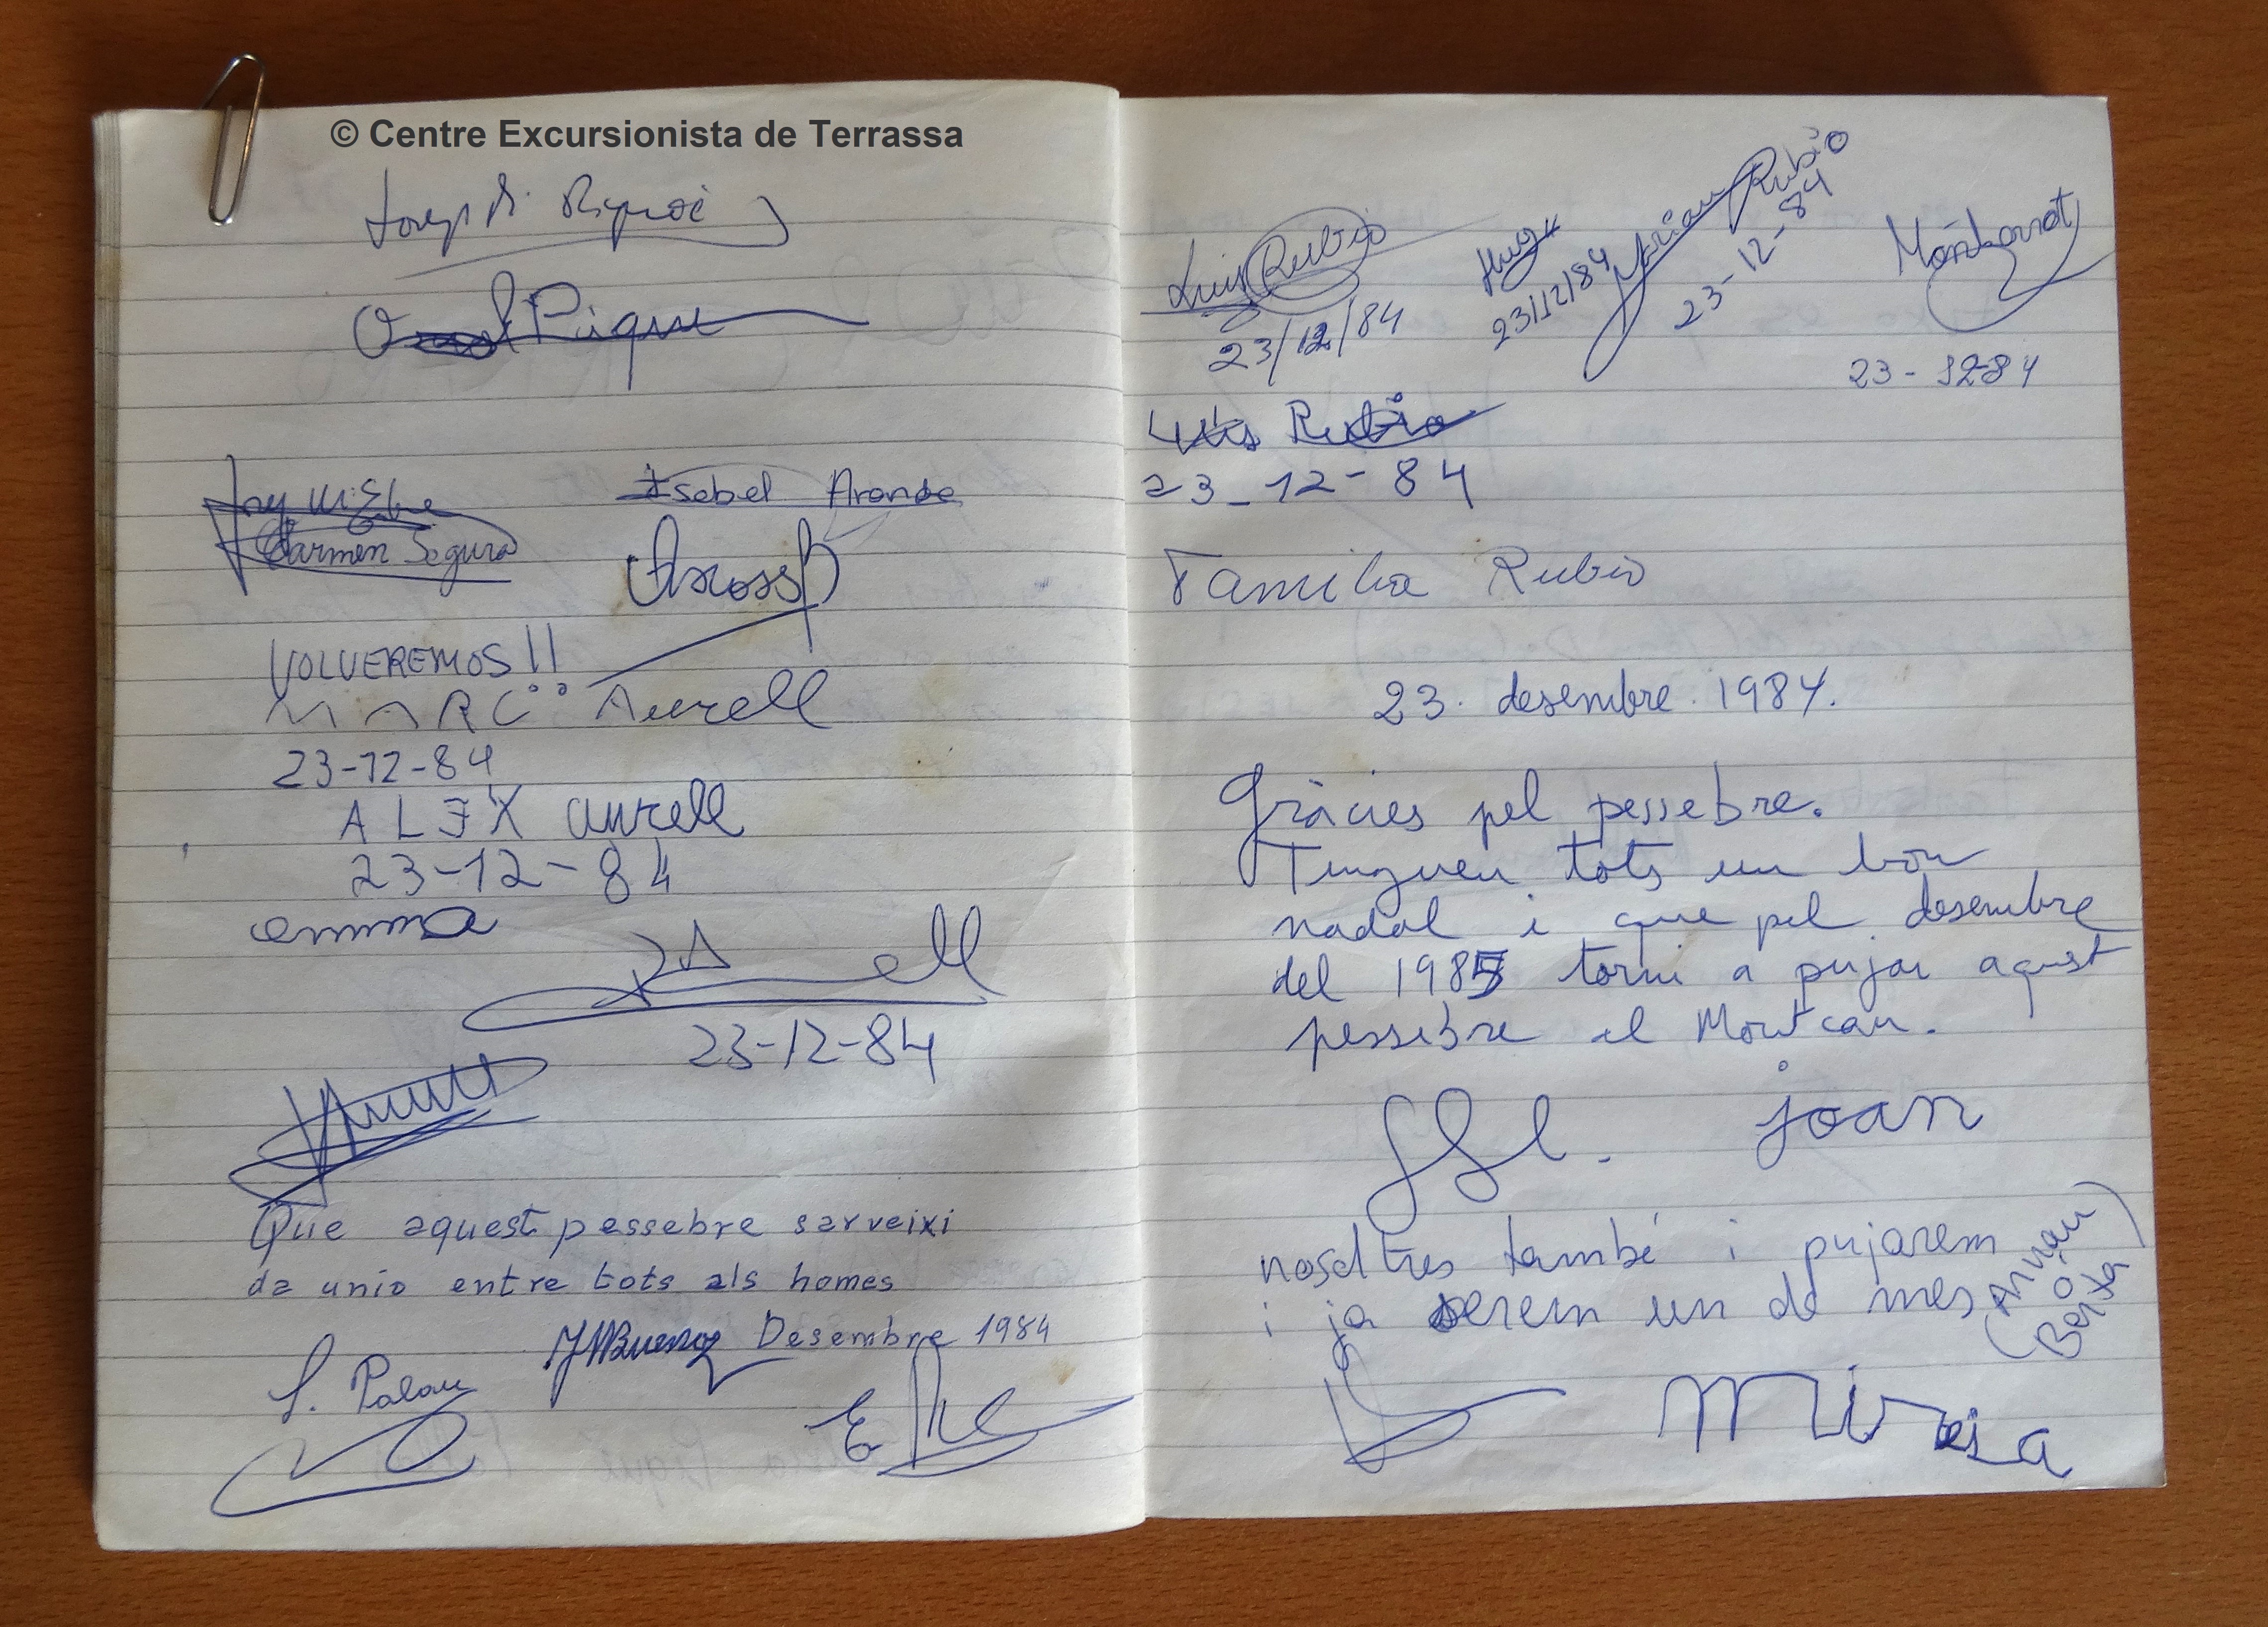 © Centre Excursionista de Terrassa
Piqué
Isabel Aranda
Carmen Segura
VOLVEREMOS!!
MARC Aurell
23-12-84
ALEX Aurell
23-12-84
emma
23-12-84
Que aquest pessebre serveixi
de unio entre tots els homes
Desembre 1984
S. Palau
Luis Rubio
23/12/84
23/12/84
Rubio
23-12-84
Montserrat
23-12-84
Luis Rubio
23-12-84
Familia Rubio
23. desembre. 1984.
Gràcies pel pessebre.
Tingueu tots un bon
nadal i que pel desembre
del 1985 torni a pujar aquest
pessebre el Montcau.
joan
nosaltres també i pujarem
i ja serem un de mes (Arnau
o
Berta)
Mireia